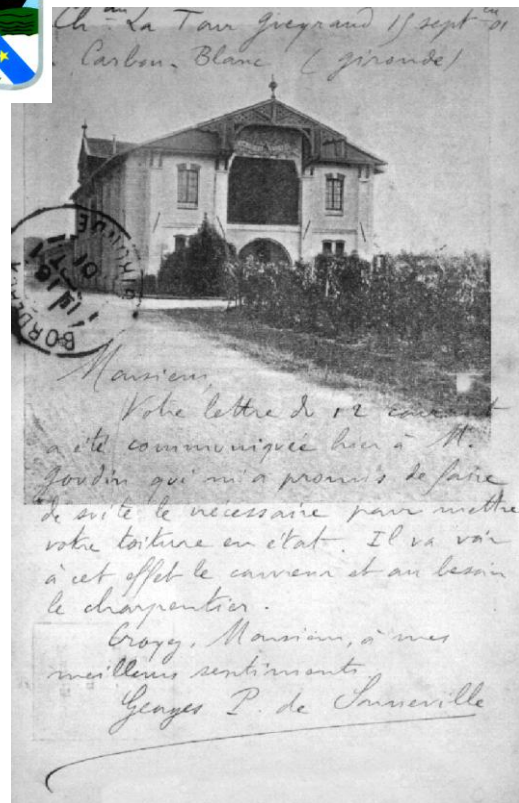 Chau La Tour Gueyraud 15 sept 01
Carbon-Blanc (Gironde)
BORDEAUX
GIRONDE
Monsieur,
Votre lettre du 12 courant
a été communiquée hier à M.
qui m'a promis de faire
de suite le nécessaire pour mettre
votre toiture en état. Il va voir
à cet effet le couvreur et au besoin
le charpentier.
Croyez, Monsieur, à mes
meilleurs sentiments
Georges P. de Sonneville